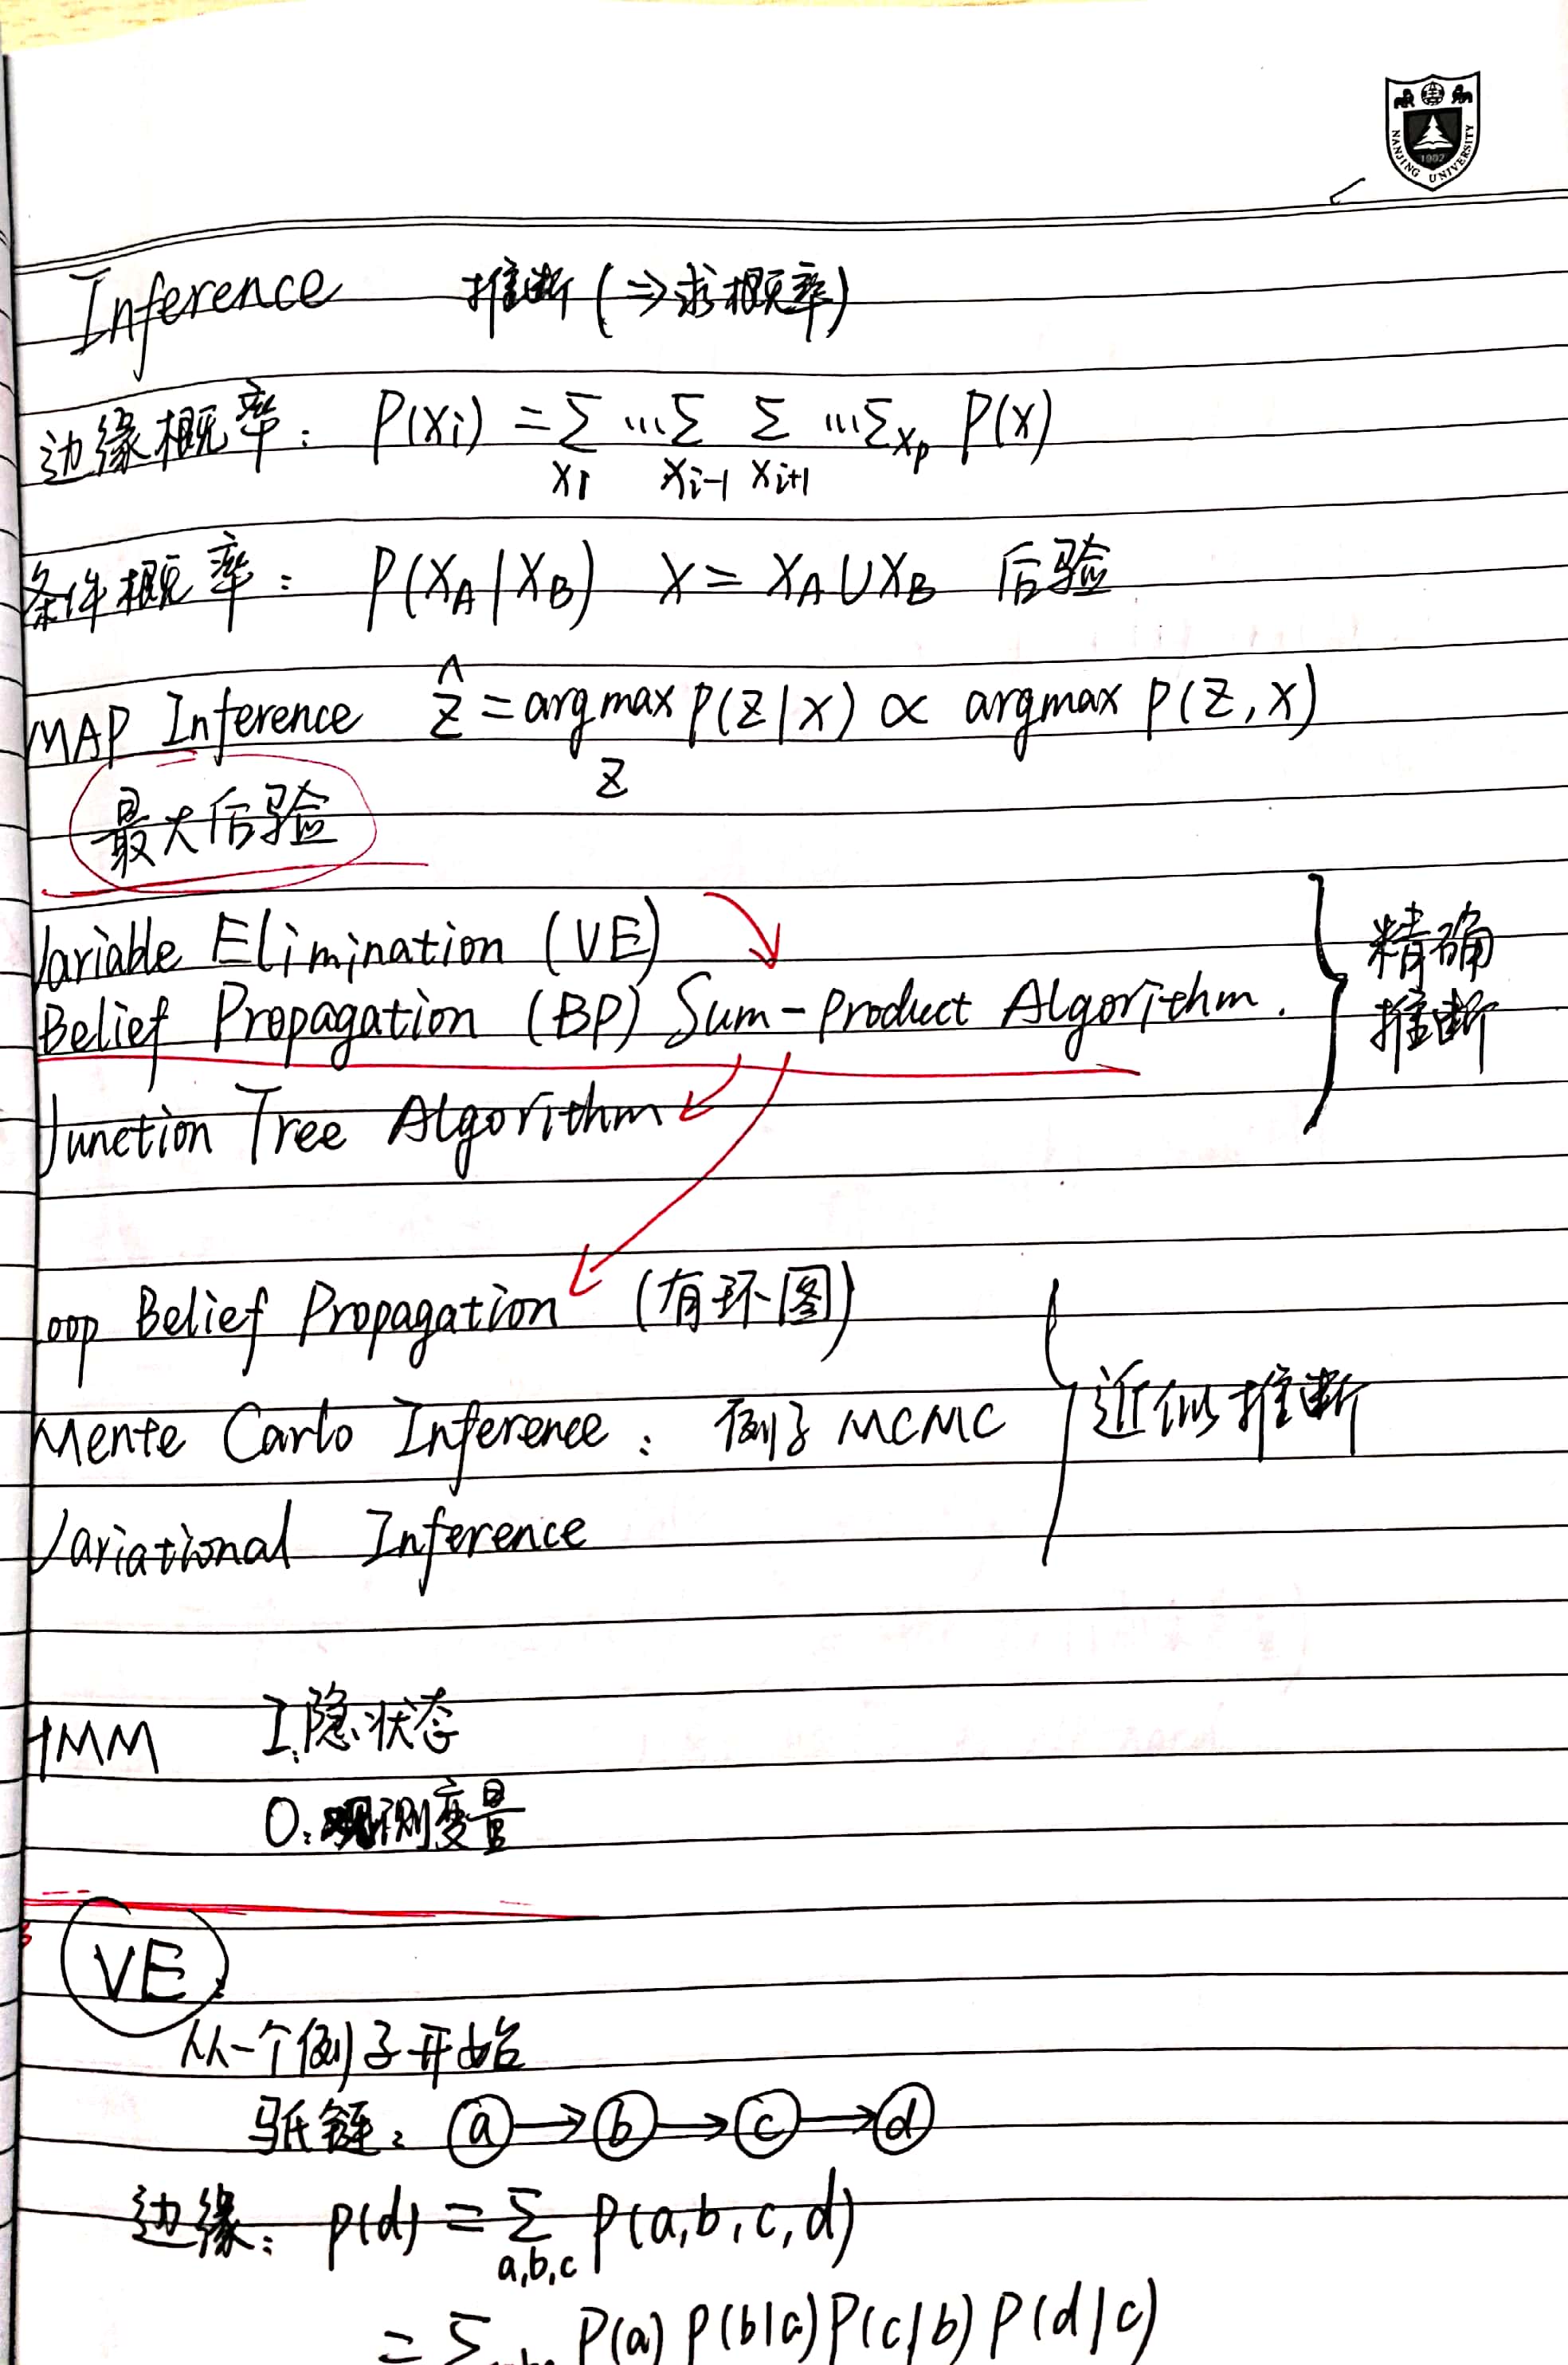 NANJING UNIVERSITY
1902
Inference 推断 (⇒求概率)
边缘概率: P(xi) = Σ_x1 ... Σ_xi-1 Σ_xi+1 ... Σ_xp P(x)
条件概率: P(XA|XB) X = XA∪XB 后验
MAP Inference ẑ = argmax_z P(z|x) ∝ argmax P(z,x)
最大后验
Variable Elimination (VE)
Belief Propagation (BP) Sum-Product Algorithm.
Junction Tree Algorithm
精确
推断
oop Belief Propagation (有环图)
Mente Carlo Inference: 例子 MCMC
近似推断
Variational Inference
HMM I:隐状态
O:观测变量
VE:
从一个例子开始
链: a → b → c → d
边缘: p(d) = Σ_a,b,c P(a,b,c,d)
= Σ P(a) P(b|a) P(c|b) P(d|c)